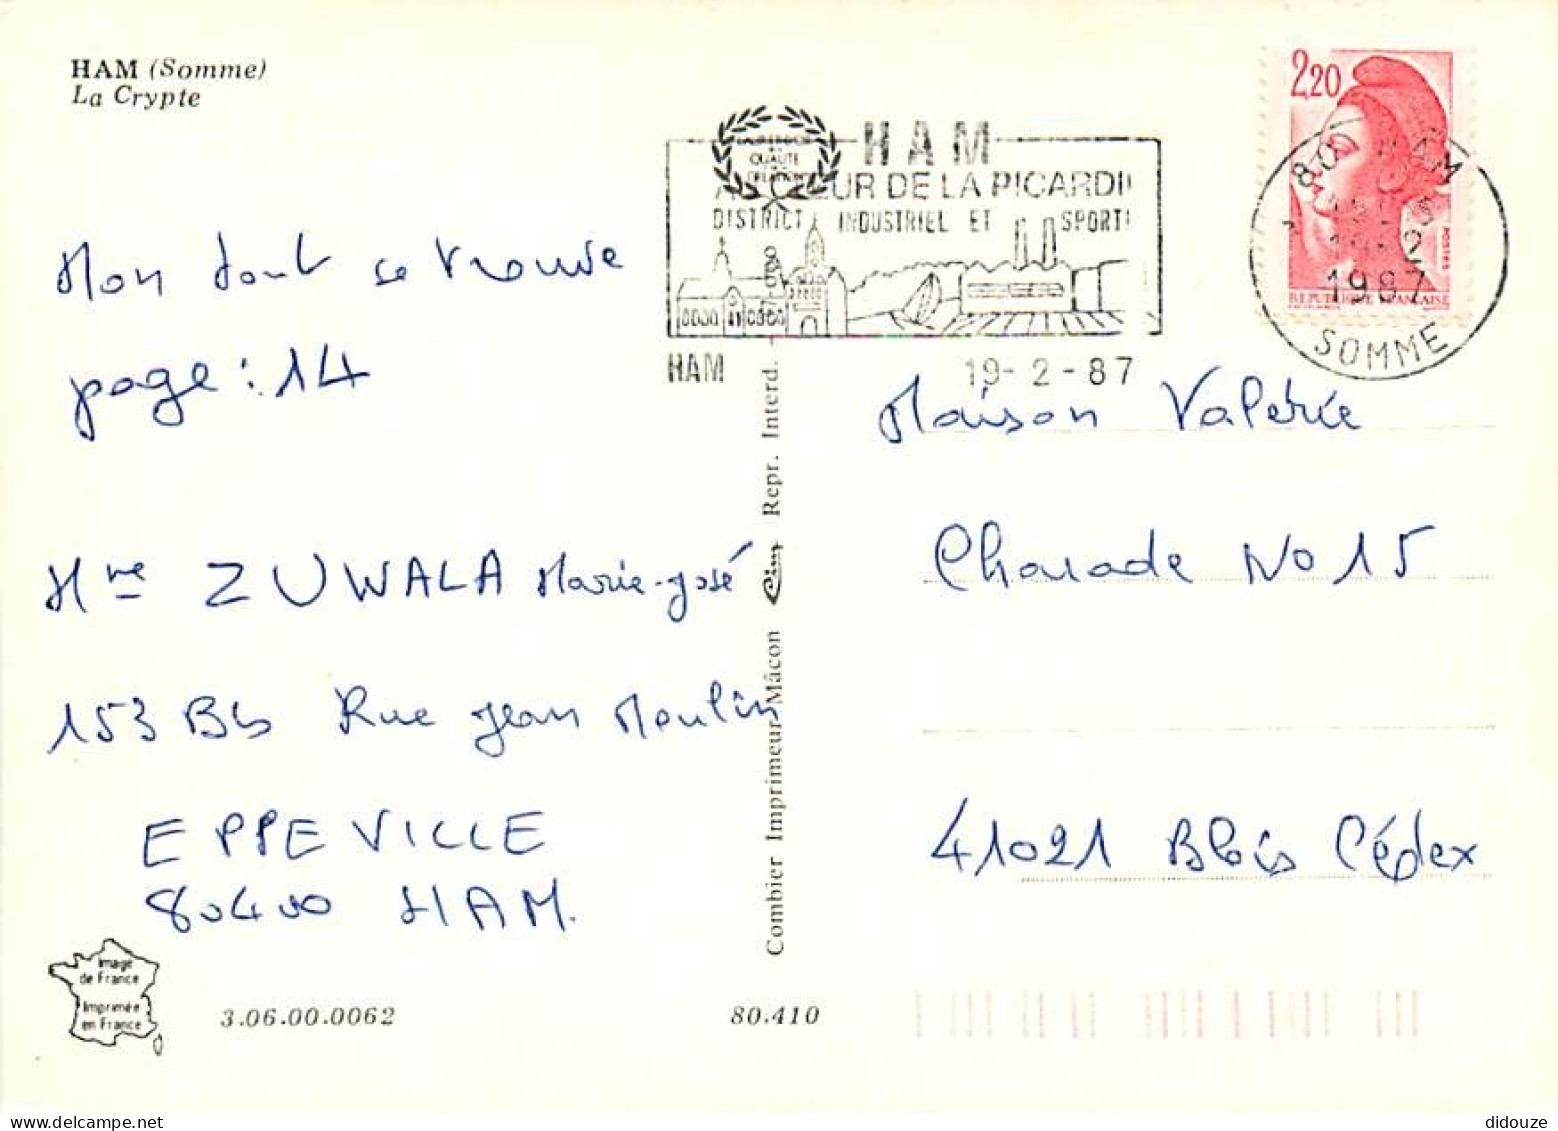 HAM (Somme)
La Crypte
2,20
HAM
QUALITÉ
CŒUR DE LA PICARDI
DISTRICT INDUSTRIEL ET SPORTI
HAM 19-2-87
80 HAM
19-2
1987
SOMME
POSTES
REPUBLIQUE FRANÇAISE
Mon se trouve
page : 14
Mme ZUWALA Marie-José
153 Bis Rue Jean Moulin
EPPEVILLE
80400 HAM.
Maison Valérie
Charade No 15
41021 Blois Cédex
Combier Imprimeur Mâcon Cim Repr. Interd.
Image
de France
Imprimée
en France
3.06.00.0062
80.410
didouze